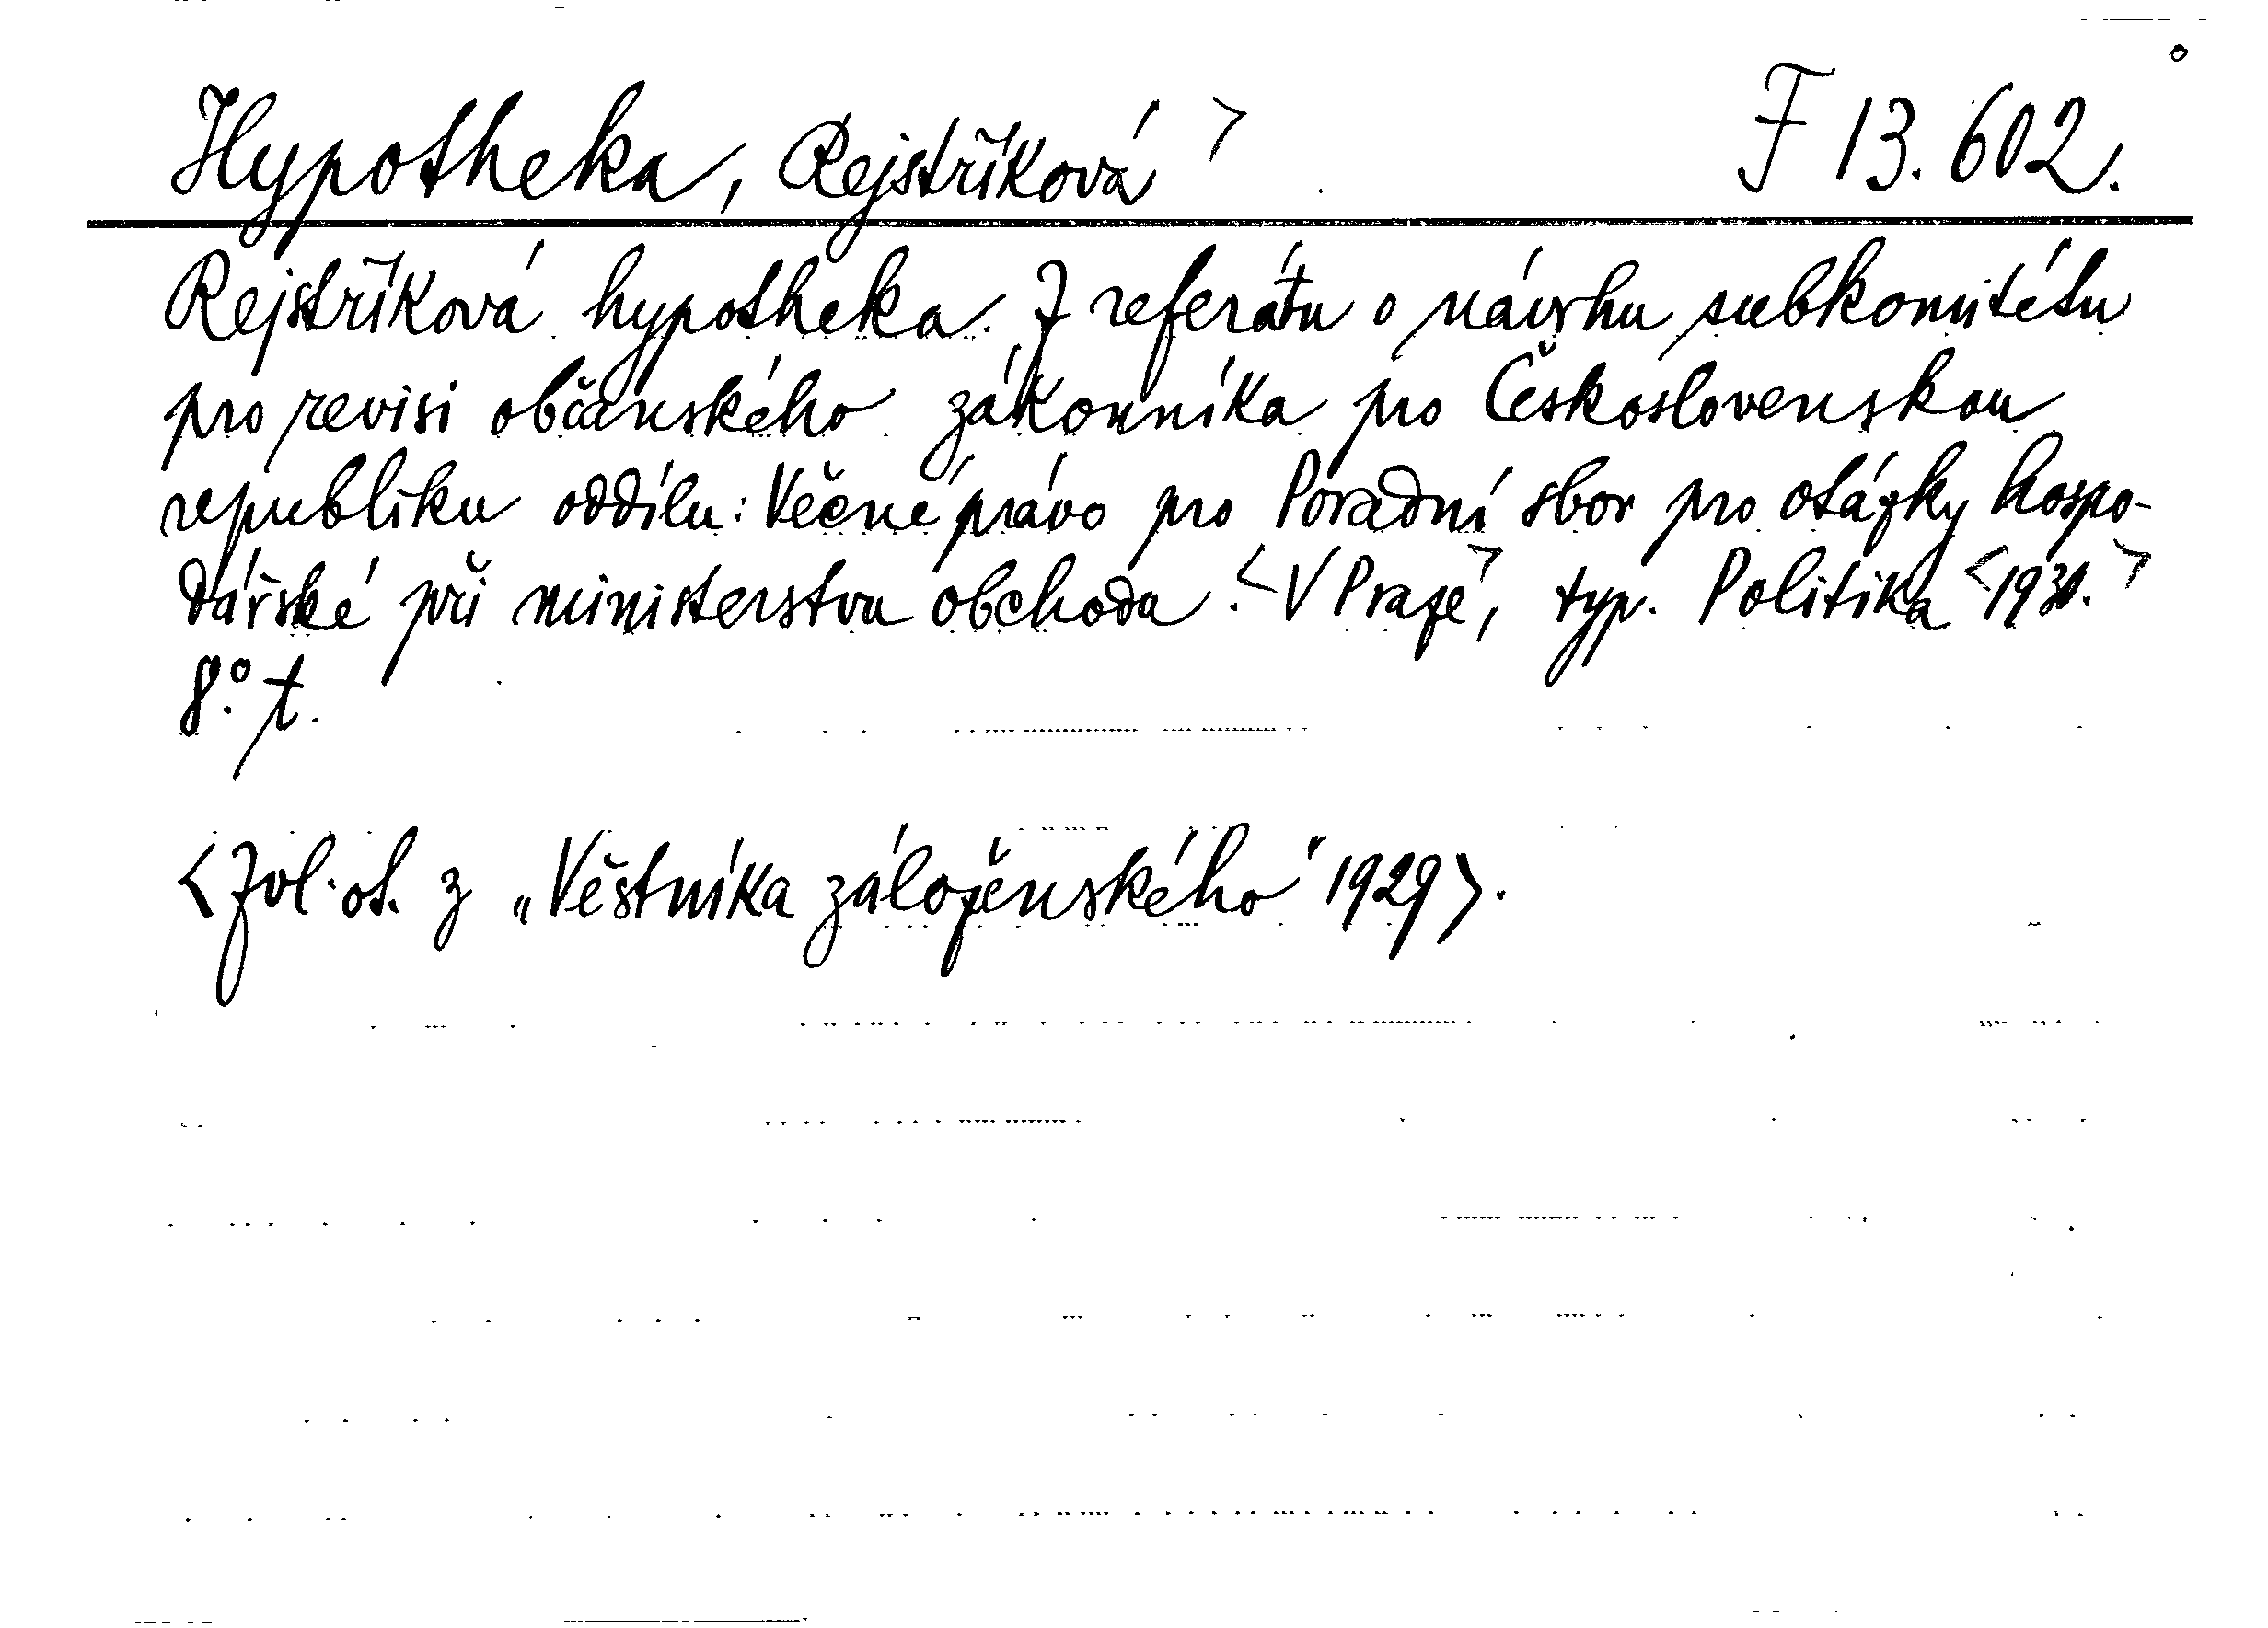 Hypotheka, Rejstříková > F 13.602.
Rejstříková hypotheka. Z referátu o návrhu subkomitétu
pro revisi občanského zákonníka pro Československou
republiku oddílu: Věcné právo pro Poradní sbor pro otázky hospo-
dářské při ministerstvu obchodu. <V Praze>, typ. Politika <1930.>
8.° t.
<Zvl. ot. z „Věstníka záloženského" 1929>.